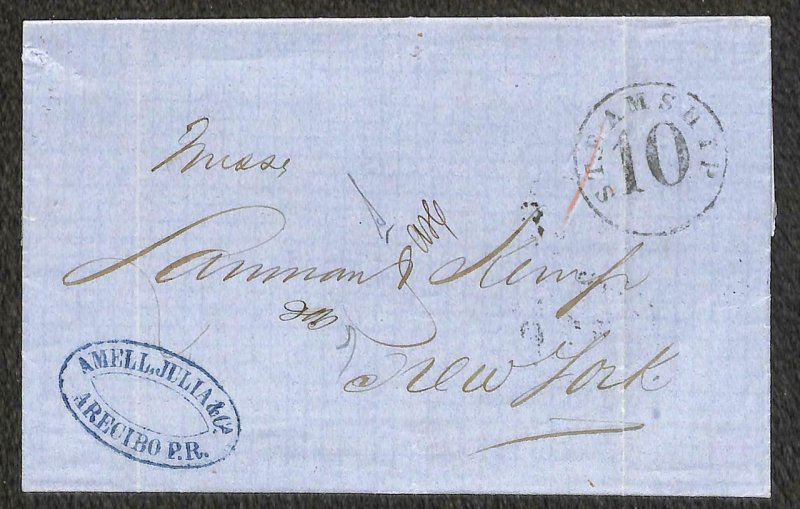 STEAMSHIP
10
Messs
Lanman & Kemp
New York.
AMELL, JULIA & Cª
ARECIBO P.R.